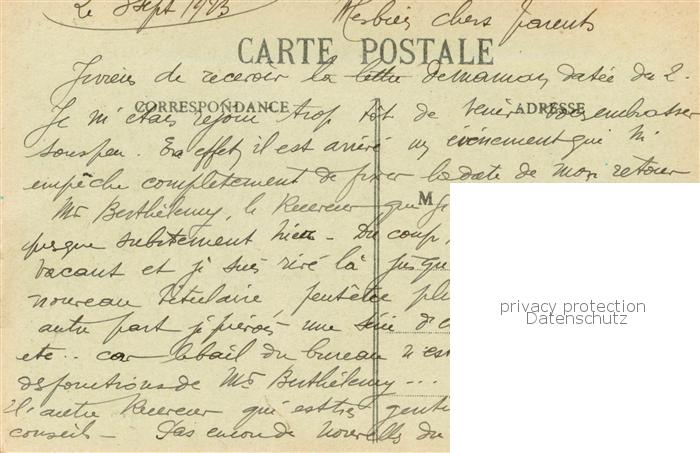 Le 3 Sept 1923
Mes bien chers parents
CARTE POSTALE
Je viens de recevoir la lettre de maman, datée du 2.
CORRESPONDANCE
ADRESSE
Je m'étais réjoui trop tôt de venir vous embrasser
sous peu. En effet, il est arrivé un événement qui m'
empêche complètement de fixer la date de mon retour
M
Mr Berthélemy, le Receveur que je
presque subitement hier. Du coup,
vacant et je suis rivé là jusqu
nouveau titulaire peut être pl
autre part je prévois une série d'
etc.. car le bail du bureau n'est
des fonctions de Mr Berthélemy...
L'autre Receveur qui est très genti
conseils - Pas encore de nouvelles du
privacy protection
Datenschutz